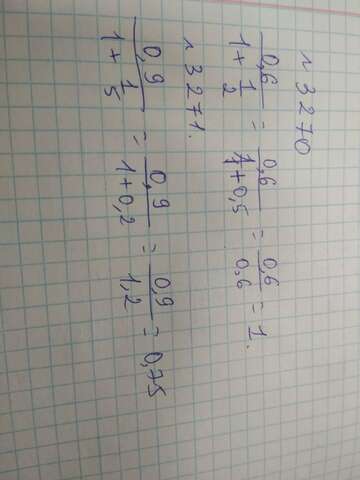 н 3270
0,6 / 1 + 1/2 = 0,6 / 1 + 0,5 = 0,6 / 0.6 = 1.
н 3271.
0,9 / 1 + 1/5 = 0,9 / 1 + 0,2 = 0,9 / 1,2 = 0,75